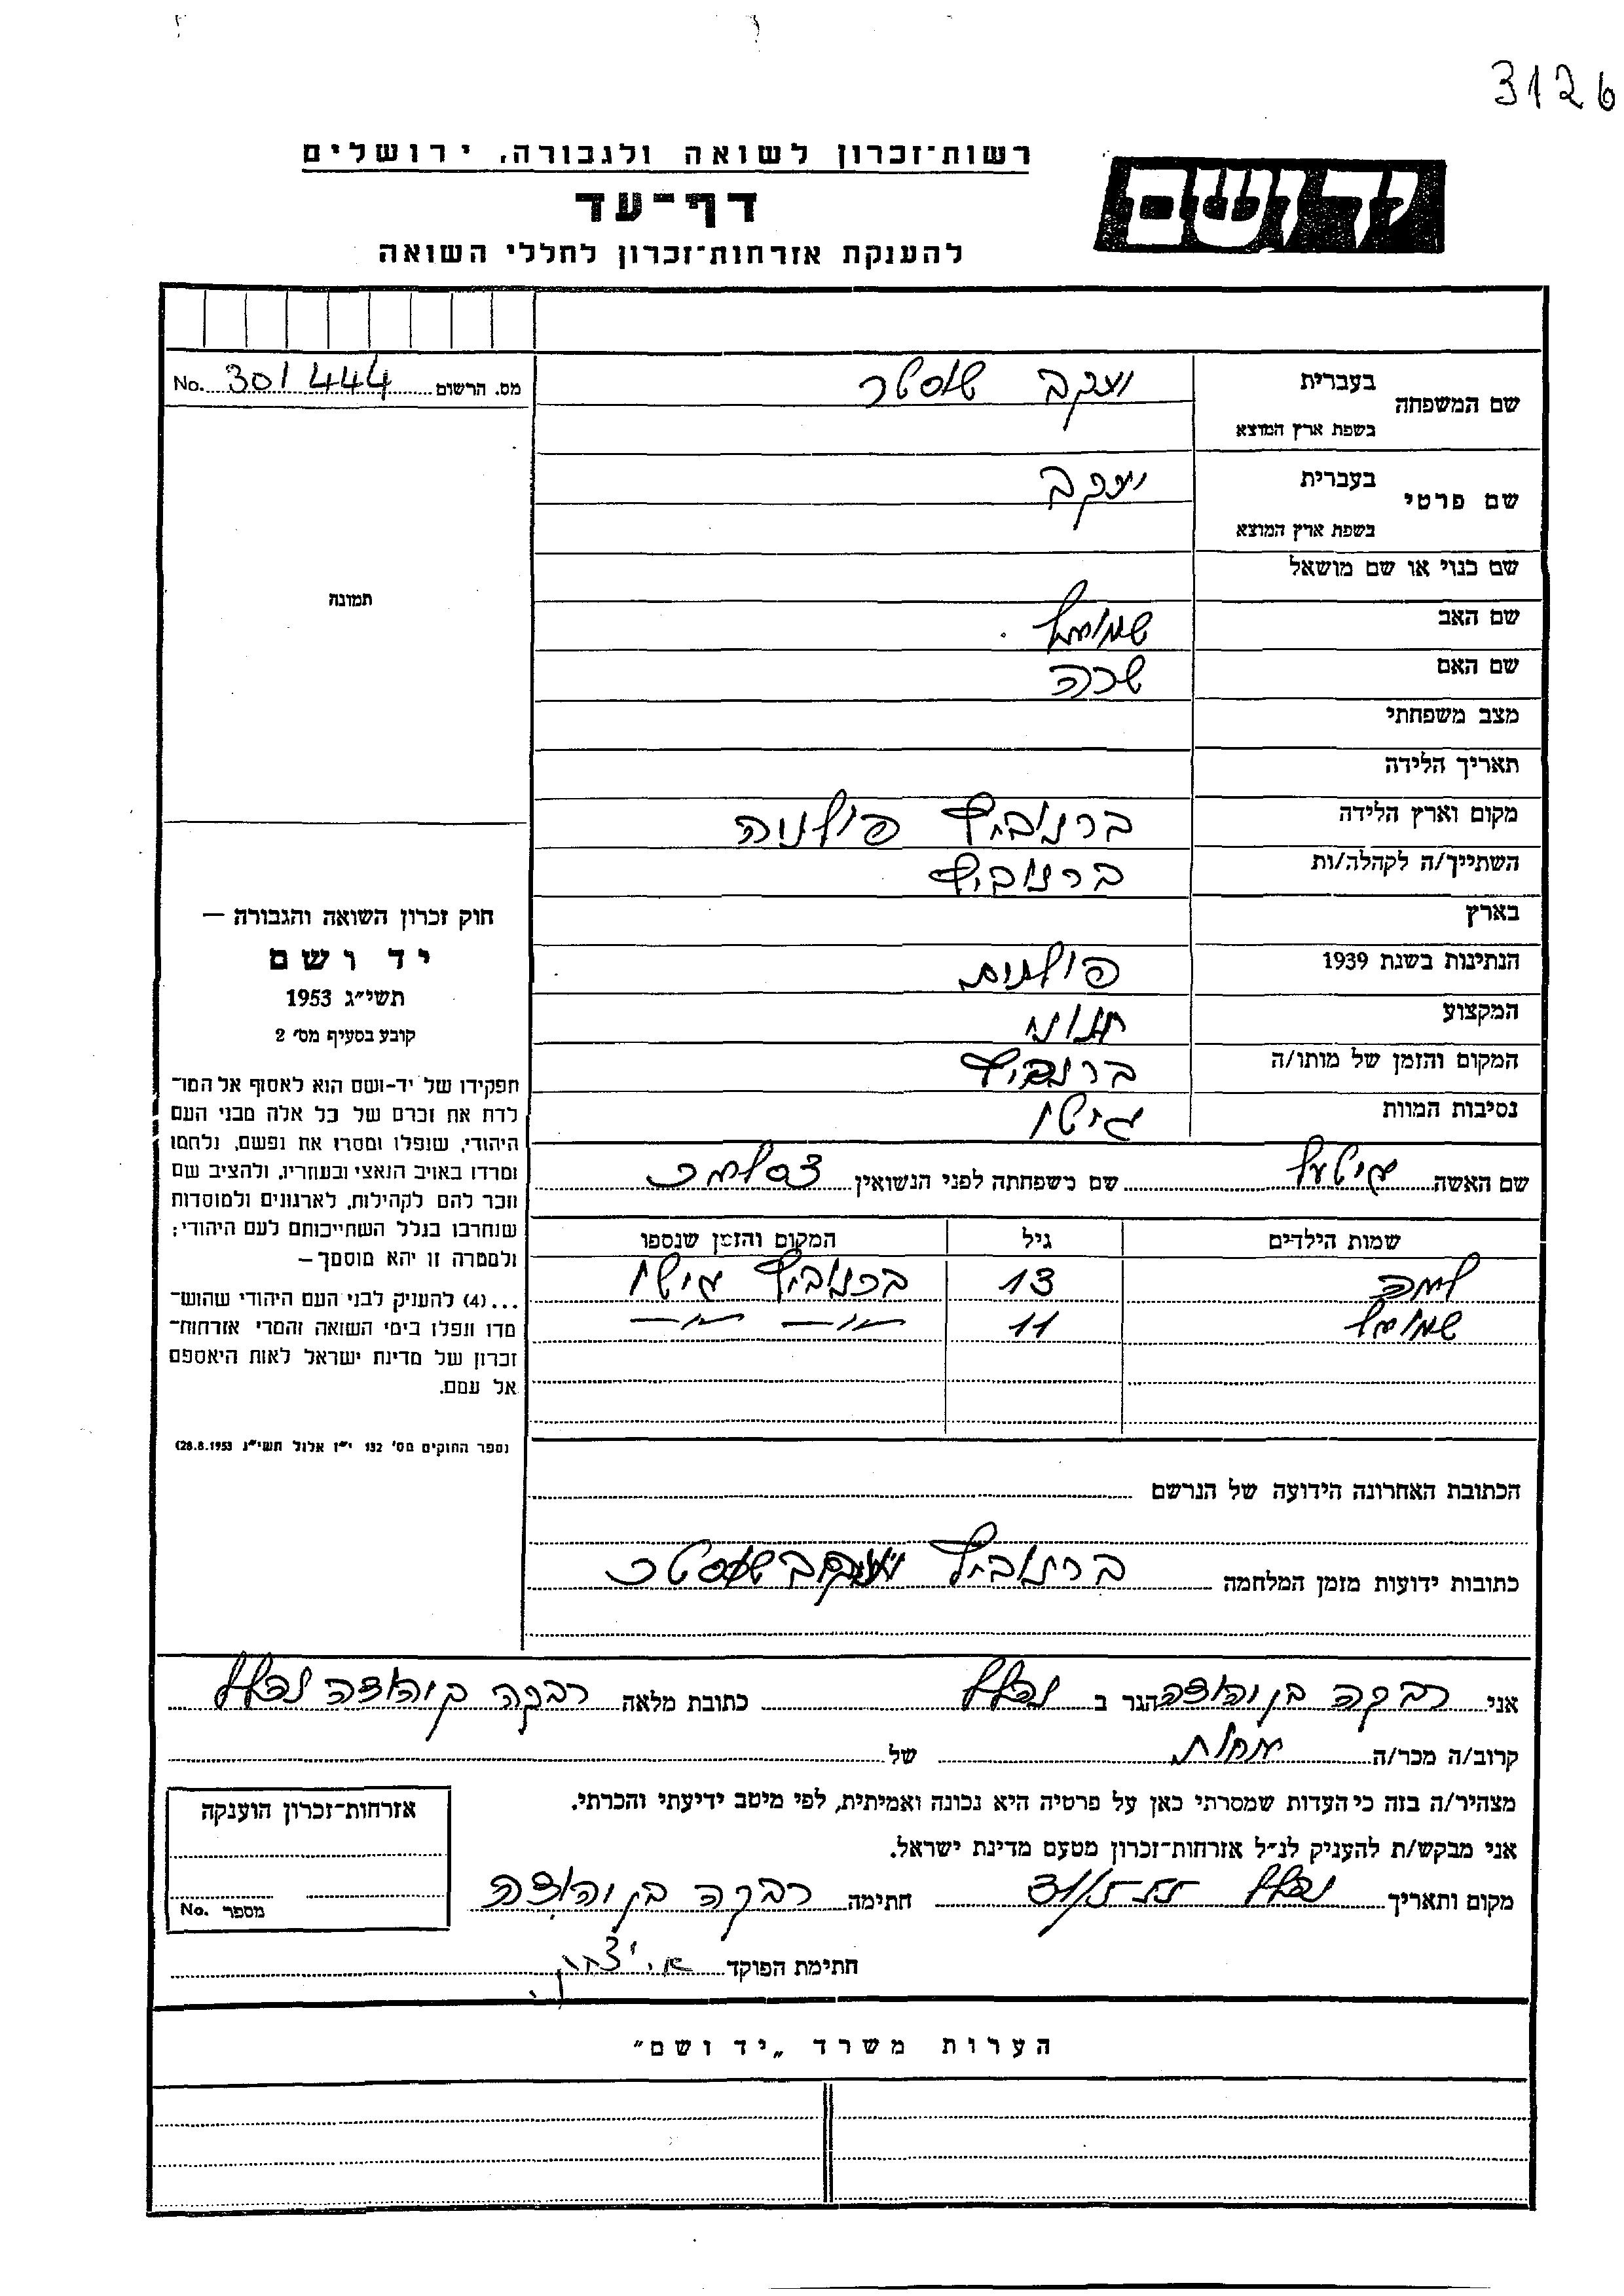 3126
רשות־זכרון לשואה ולגבורה, ירושלים
יד ושם
דף־עד
להענקת אזרחות־זכרון לחללי השואה
מס. הרשום 301444 No.
שם המשפחה בעברית יעקב שוסטר
בשפת ארץ המוצא
שם פרטי בעברית יעקב
בשפת ארץ המוצא
שם כנוי או שם מושאל
תמונה
שם האב שמואל
שם האם שרה
מצב משפחתי
תאריך הלידה
מקום וארץ הלידה ברנוביץ פולניה
השתייך/ה לקהלה/ות ברנוביץ
בארץ
הנתינות בשנת 1939 פולנית
המקצוע חנוני
המקום והזמן של מותו/ה ברנוביץ
נסיבות המוות גיטו
חוק זכרון השואה והגבורה —
יד ושם
תשי״ג 1953
קובע בסעיף מס׳ 2
תפקידו של יד-ושם הוא לאסוף אל המו־
לדת את זכרם של כל אלה מבני העם
היהודי, שנפלו ומסרו את נפשם, נלחמו
ומרדו באויב הנאצי ובעוזריו, ולהציב שם
וזכר להם לקהילות, לארגונים ולמוסדות
שנחרבו בגלל השתייכותם לעם היהודי;
ולמטרה זו יהא מוסמך—
...(4) להעניק לבני העם היהודי שהוש־
מדו ונפלו בימי השואה והמרי אזרחות־
זכרון של מדינת ישראל לאות היאספם
אל עמם.
(ספר החוקים מס׳ 132 י״ז אלול תשי״ג 28.8.1953)
שם האשה גיטל שם משפחתה לפני הנשואין
שמות הילדים גיל המקום והזמן שנספו
13 ברנוביץ גיטו
שמואל 11 —״— —״—
הכתובת האחרונה הידועה של הנרשם
כתובות ידועות מזמן המלחמה ברנוביץ יעקב שוסטר
אני רבקה בן יהודה הגר ב נהלל כתובת מלאה רבקה בן יהודה נהלל
קרוב/ה מכר/ה אחות של
מצהיר/ה בזה כי העדות שמסרתי כאן על פרטיה היא נכונה ואמיתית, לפי מיטב ידיעתי והכרתי.
אני מבקש/ת להעניק לנ״ל אזרחות־זכרון מטעם מדינת ישראל.
מקום ותאריך נהלל חתימה רבקה בן יהודה
חתימת הפוקד א. יצחקי
אזרחות־זכרון הוענקה
מספר No.
הערות משרד „יד ושם״